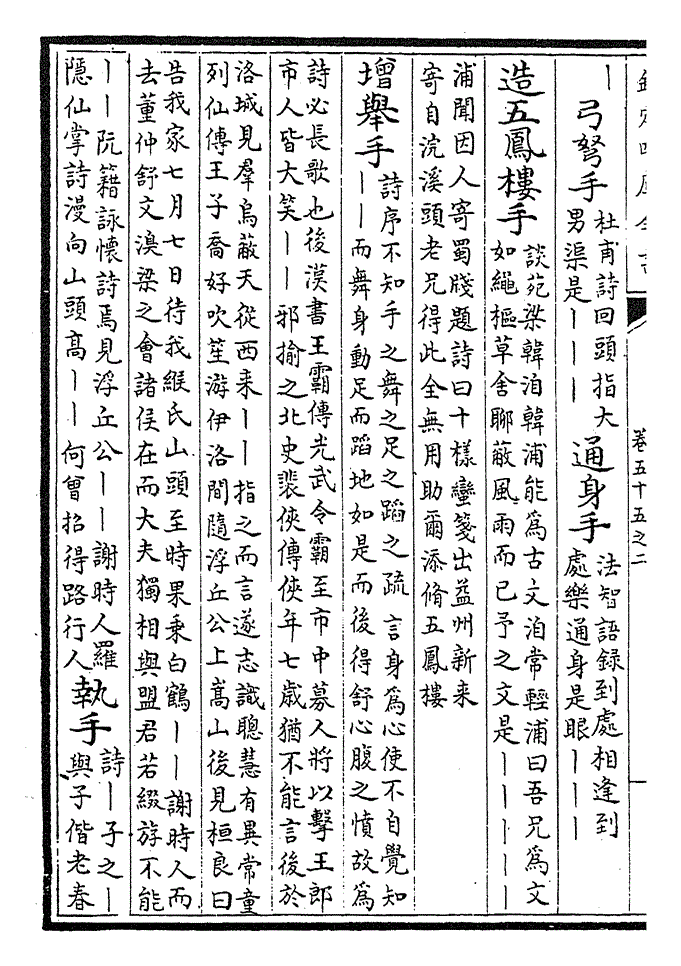 欽定四庫全書
卷五十五之二
｜弓弩手 杜甫詩回頭指大
男渠是｜｜｜
通身手 法智語録到處相逢到
處樂通身是眼｜｜｜
造五鳳樓手 談苑梁韓洎韓浦能為古文洎常輕浦曰吾兄為文
如繩樞草舍聊蔽風雨而已予之文是｜｜｜｜｜
浦聞因人寄蜀牋題詩曰十樣蠻箋出益州新来
寄自浣溪頭老兄得此全無用助爾添脩五鳳樓
增舉手 詩序不知手之舞之足之蹈之疏 言身為心使不自覺知
｜｜而舞身動足而蹈地如是而後得舒心腹之憤故為
詩必長歌也後漢書王霸傳光武令霸至市中募人將以擊王郎
市人皆大笑｜｜邪揄之北史裴俠傳俠年七歳猶不能言後於
洛城見羣烏蔽天從西来｜｜指之而言遂志識聰慧有異常童
列仙傳王子喬好吹笙游伊洛間隨浮丘公上嵩山後見桓良曰
告我家七月七日待我緱氏山頭至時果乘白鶴｜｜謝時人而
去董仲舒文溴梁之會諸侯在而大夫獨相與盟君若綴游不能
｜｜阮籍詠懷詩焉見浮丘公｜｜謝時人羅
隱仙掌詩漫向山頭髙｜｜何曾招得路行人
執手 詩｜子之｜
與子偕老春